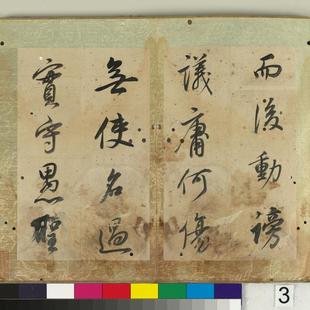 而後動謗
議庸何傷
無使名過
實守愚聖
3